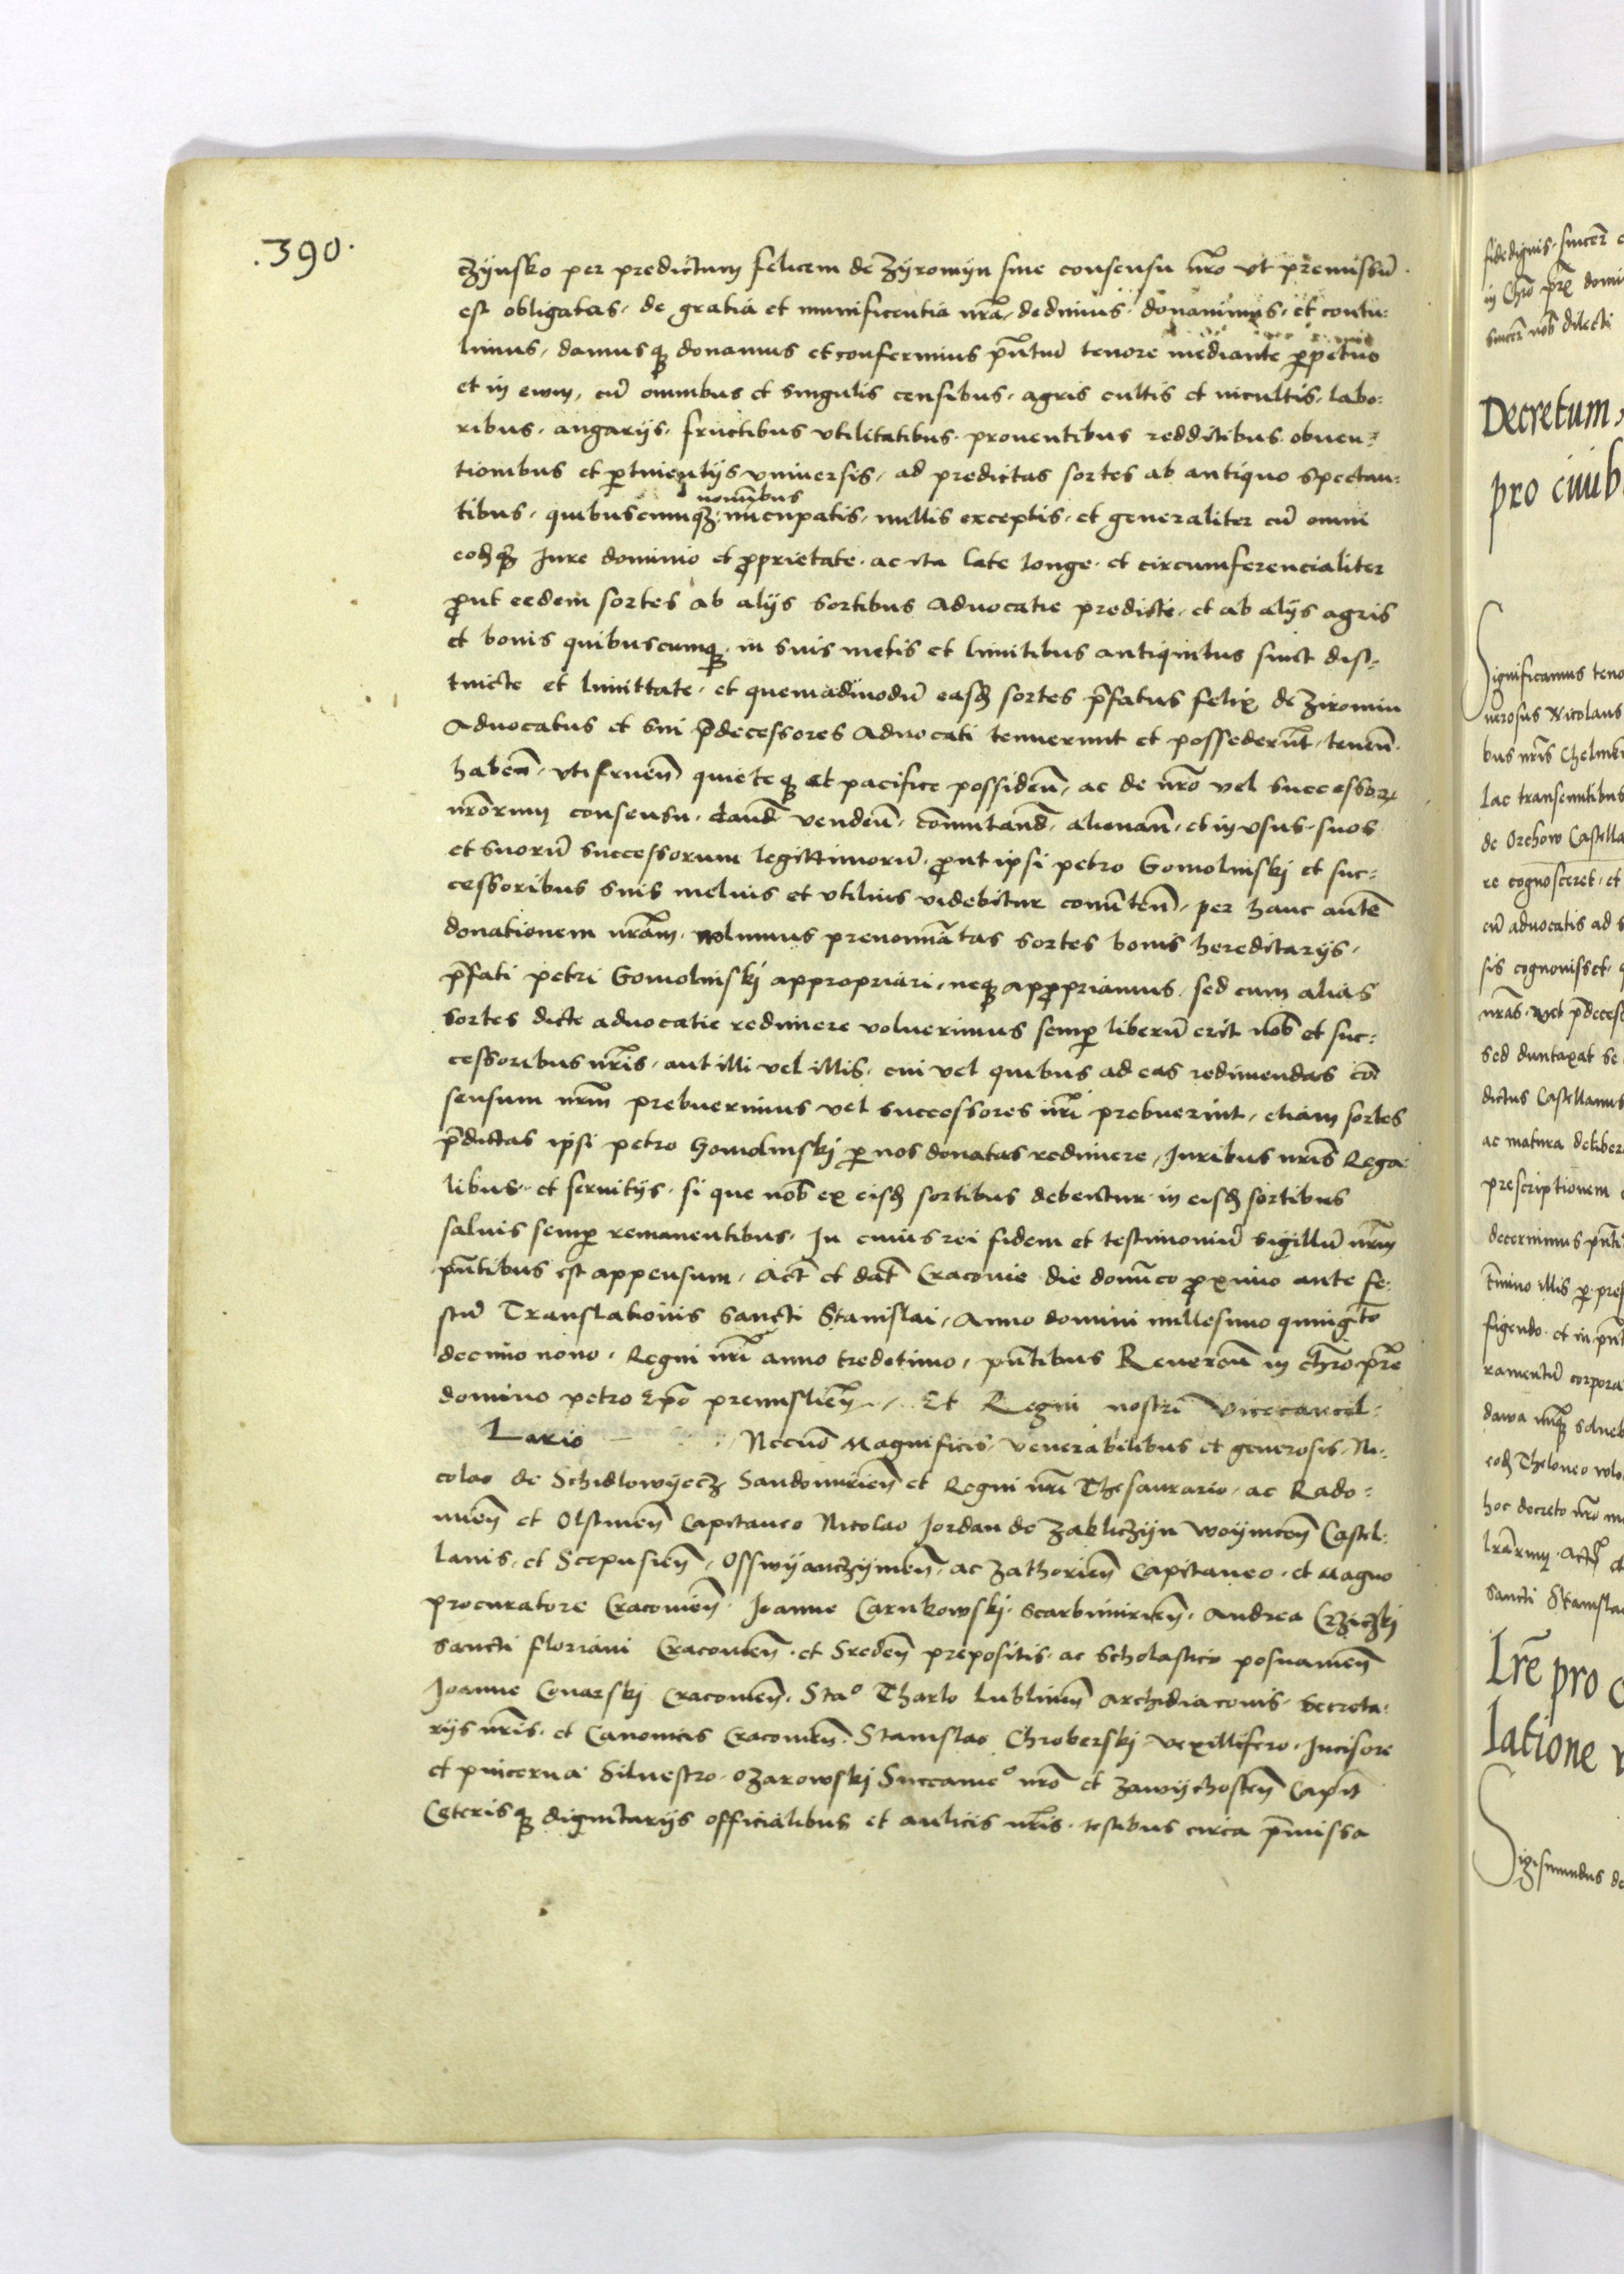 .390.
czynsko per predictum felicem de Zyromyn sine consensu nr̃o vt premissũ
est obligatas, de gratia et munificentia nr̃a, dedimus, donauimus, et contu=
limus, damusq donamus et conferimus pñtiũ tenore mediante ꝑpetuo
et in ewm, cũ omnibus et singulis censibus, agris cultis et incultis, labo=
ribus, angarijs, fructibus vtilitatibus, prouentibus redditibus obuen=
tionibus et ꝑtinentijs vniuersis, ad predictas sortes ab antiquo spectan=
nominibus
tibus, quibuscumqȝ nuncupatis, nullis exceptis, et generaliter cũ omni
eodq̃ Jure dominio et ꝓprietate, ac ita late longe, et circumferencialiter
ꝓut eedem sortes ab alijs sortibus aduocatie predicte, et ab alijs agris
et bonis quibuscumqȝ, in suis metis et limitibus antiquitus sunt dis=
tincte et limittate, et quemadmodũ easd sortes p̃fatus felix de Ziromin
Aduocatus et sui p̃decessores Aduocati tenuerunt et possederũt, tenen̄
haben̄, vtifruen̄ quieteqȝ et pacifice possiden̄, ac de nr̃o vel successoꝝ
nr̃orum consensu, dand̃ venden̄, com̃utand̃, alienan̄, et in vsus suos
et suorũ successorum legittimorũ, ꝓut ipsi petro Gomolinskj et suc=
cessoribus suis melius et vtilius videbitur conuerten̄, per hanc autẽ
donationem nr̃am, nolumus prenominatas sortes bonis hereditarijs,
p̃fati petri Gomolinskj appropriari, neqȝ apꝓpriamus, sed cum alias
sortes dicte aduocatie redimere voluerimus semꝑ liberũ erit nob̃ et suc=
cessoribus nr̃is, aut illi vel illis, cui vel quibus ad eas redimendas cõ
sensum nr̃m prebuerimus vel successores nr̃i prebuerint, etiam sortes
p̃dictas ipsi petro Gomolinskj ꝑ nos donatas redimere, Juribus nr̃is Rega=
libus, et seruitijs, si que nob̃ ex eisd sortibus debentur in eisd sortibus
saluis semꝑ remanentibus. In cuius rei fidem et testimoniũ sigillũ nr̃m
pñtibus est appensum, Act̃ et dat̃ Cracouie die dominico ꝓximo ante fe=
stũ Translationis Sancti Stanislai, Anno domini millesimo quingto
decimo nono, Regni nr̃i anno tredecimo, pñtibus Reueren̄ in chr̃o pr̃e
domino petro Ep̃o premislien̄, Et Regni nostri Vicecancel=
Lario Necnõ Magnificis, venerabilibus et generosis, Ni=
colao de Schidlowyecz Sandomirien̄ et Regni nr̃i Thesaurario, ac Rado=
mien̄ et Olstinen̄ Capitaneo Nicolao Jordan de Zakliczyn woynicen̄ Castel=
lanis, et Scepusien̄, Osswyanczymen̄, ac Zathorien̄ Capitaneo, et Magno
procuratore Cracouien̄, Joanne Carnkowskj, Scarbimirien̄, Andrea Crziczkj
Sancti floriani Cracouien̄, et Sreden̄ prepositis, ac Scholastico posnanien̄
Joanne Conarskj Cracouien̄, Sta° Tharlo lublinen̄ archidiaconis, Secreta=
rijs nr̃is, et Canonicis Cracouien̄, Stanislao Chroberskj vexillifero, Incisore
et pincerna Siluestro Ozarowskj Succame° nr̃o et Zawychosten̄ Capit̃
Ceterisqȝ dignitarijs officialibus et aulicis nr̃is, testibus circa p̃missa
fidedignis, sincer̃
in Chr̃o pr̃e domi
sincer̃ nob̃ dilecti
Decretum
pro ciuib
Significamus teno
nerosus Nicolaus
bus nr̃is Chelmen̄
lac transeuntibus
de Orchow Castella
re cognosceret, et
cũ aduocatis ad s
sis cognouisset,
nr̃as, p̃decess
sed duntaxat se
dictus Castellanus
ac matura deliber
prescriptionem
decernimus pñti
t̃mino illis ꝑ pres
figendo, et in pñt
ramentũ corpora
dawa nũqȝ solueb
eod Theloneo
hoc decreto nr̃o
lr̃arum, Act̃
Sancti Stanisla
Lr̃e pro
latione
Sigismundus de